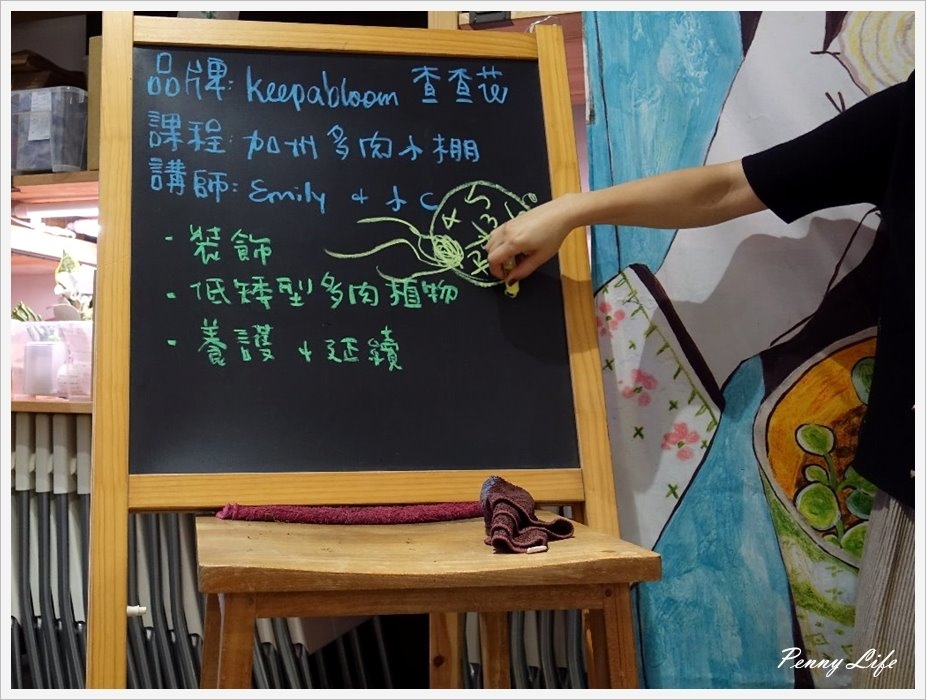 品牌: keepabloom 查查花
課程: 加州多肉小棚
講師: Emily + 小C
· 裝飾
· 低矮型多肉植物
· 養護 + 延續
Penny Life